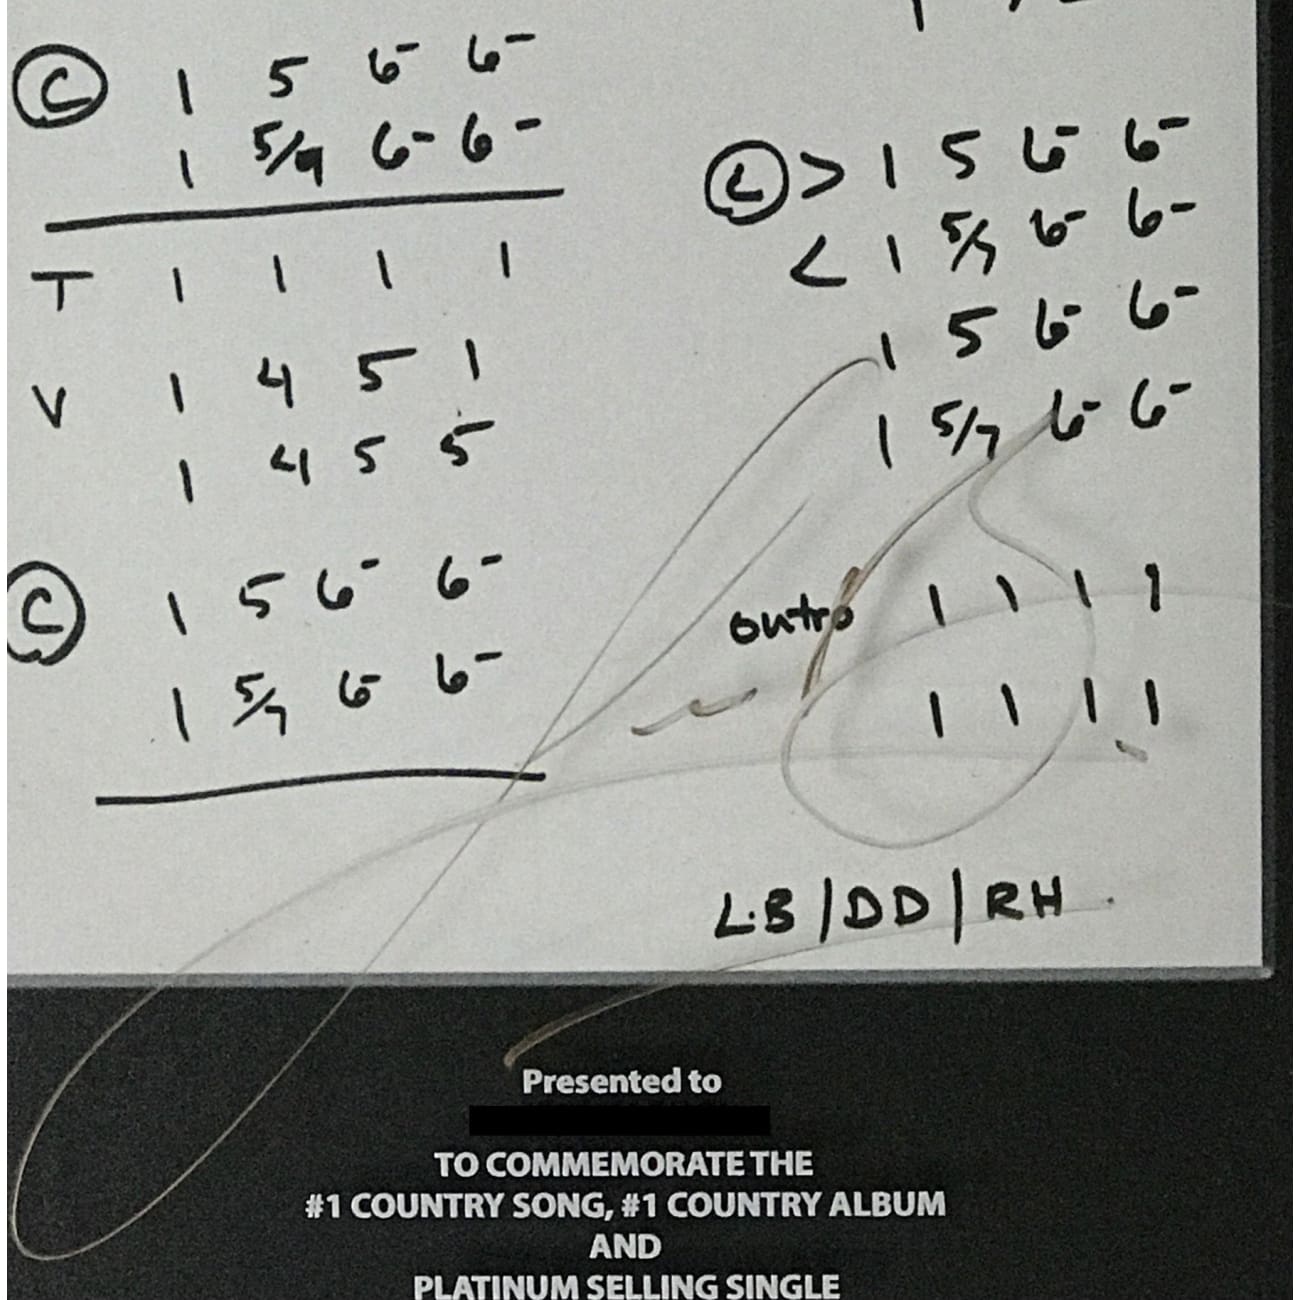 C 1 5 6- 6-
1 5/7 6- 6-
T 1 1 1 1
V 1 4 5 1
1 4 5 5
C 1 5 6- 6-
1 5/7 6- 6-
C > 1 5 6- 6-
< 1 5/7 6- 6-
1 5 6- 6-
1 5/7 6- 6-
outro 1 1 1 1
1 1 1 1
L.B / DD / RH
Presented to
TO COMMEMORATE THE
#1 COUNTRY SONG, #1 COUNTRY ALBUM
AND
PLATINUM SELLING SINGLE